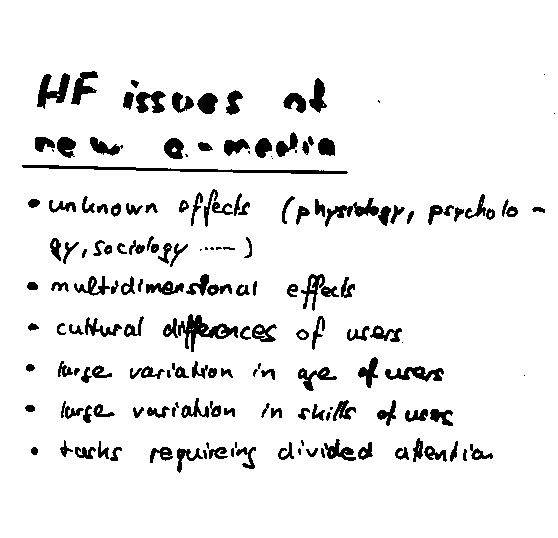 HF issues of
new e-media
• unknown effects (physiology, psycholo-
gy, sociology ......)
• multidimensional effects
• cultural differences of users
• large variation in age of users
• large variation in skills of users
• tasks requireing divided attention